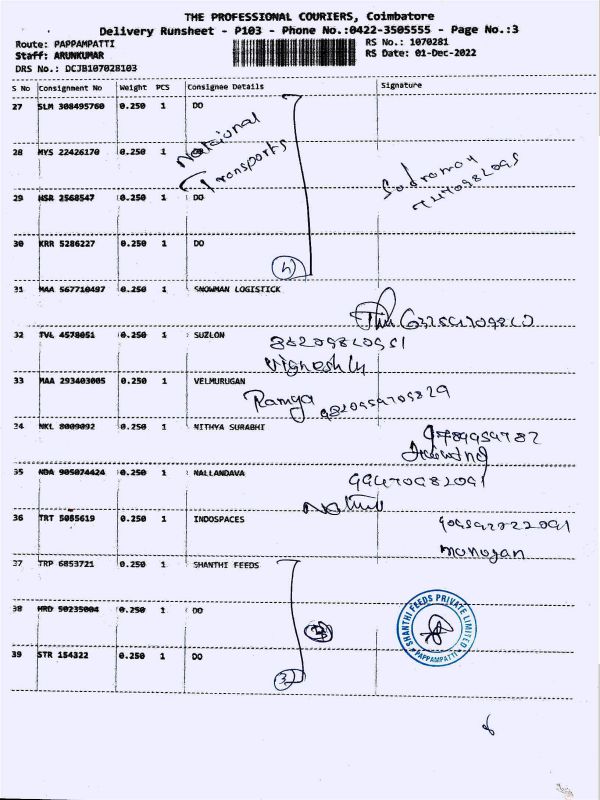 THE PROFESSIONAL COURIERS, Coimbatore
Delivery Runsheet - P103 - Phone No.:0422-3505555 - Page No.:3
Route: PAPPAMPATTI
RS No.: 1070281
Staff: ARUNKUMAR
RS Date: 01-Dec-2022
DRS No.: DCJB107028103
S No Consignment No Weight PCS Consignee Details Signature
27 SLM 308495760 0.250 1 DO
28 MYS 22426170 0.250 1
National
Transports
29 HSR 2568547 0.250 1 DO
30 KRR 5286227 0.250 1 DO
4
31 MAA 567710497 0.250 1 SNOWMAN LOGISTICK
32 TVL 4578051 0.250 1 SUZLON
Vignesh
33 MAA 293403005 0.250 1 VELMURUGAN
Ramya
34 NKL 8009092 0.250 1 NITHYA SURABHI
35 NDA 905074424 0.250 1 NALLANDAVA
99470982091
36 TRT 5085619 0.250 1 INDOSPACES
37 TRP 6853721 0.250 1 SHANTHI FEEDS
38 HRD 50235004 0.250 1 DO
SHANTHI FEEDS PRIVATE LIMITED
PAPPAMPATTI
39 STR 154322 0.250 1 DO
3